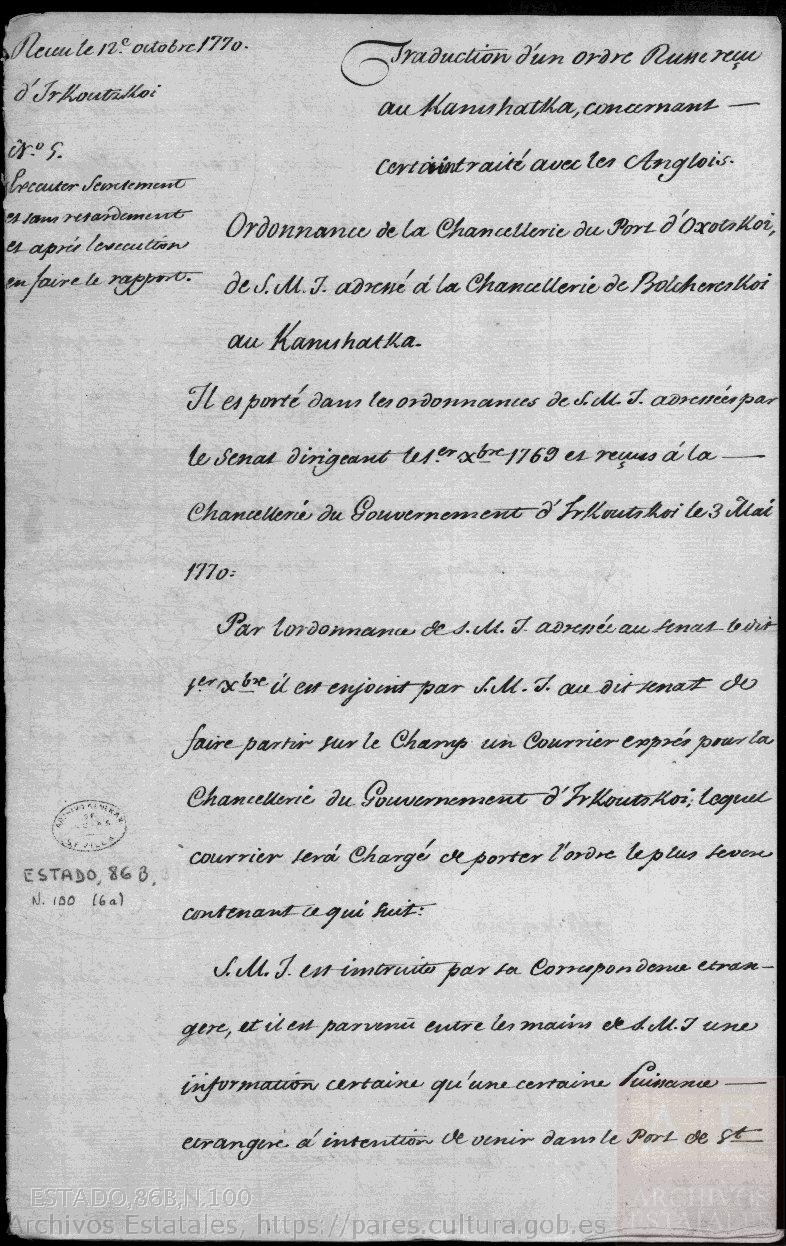 Recu le 12e octobre 1770.
d'Irkoutzkoi
No 5.
Executer secretement
et sans retardement
et aprés l'execution
en faire le rapport.
Traduction d'un ordre Russe reçu
au Kamshatka, concernant —
certain traité avec les Anglois.
Ordonnance de la Chancellerie du Port d'Oxotskoi,
de S. M. I. adressé á la Chancellerie de Bolchereskoi
au Kamshatka.
Il es porté dans les ordonnances de S. M. I. adressées par
le Senat dirigeant le 1er Xbre 1769 et reçues á la —
Chancellerie du Gouvernement d'Irkoutskoi le 3 Mai
1770:
Par l'ordonnance de S. M. I. adressée au senat le dit
1er Xbre il est enjoint par S. M. I. au dit senat de
faire partir sur le Champ un Courrier exprés pour la
Chancellerie du Gouvernement d'Irkoutskoi, lequel
courrier será Chargé de porter l'ordre le plus severe
contenant ce qui suit:
S. M. I. est instruite par sa Correspondence etran-
gere, et il est parvenu entre les mains de S. M. I une
information certaine qu'une certaine Puissance —
etrangere á intention de venir dans le Port de St
ESTADO, 86 B,
N. 100 (6a)
ESTADO,86B,N.100
Archivos Estatales, https://pares.cultura.gob.es
ARCHIVOS
ESTATALES